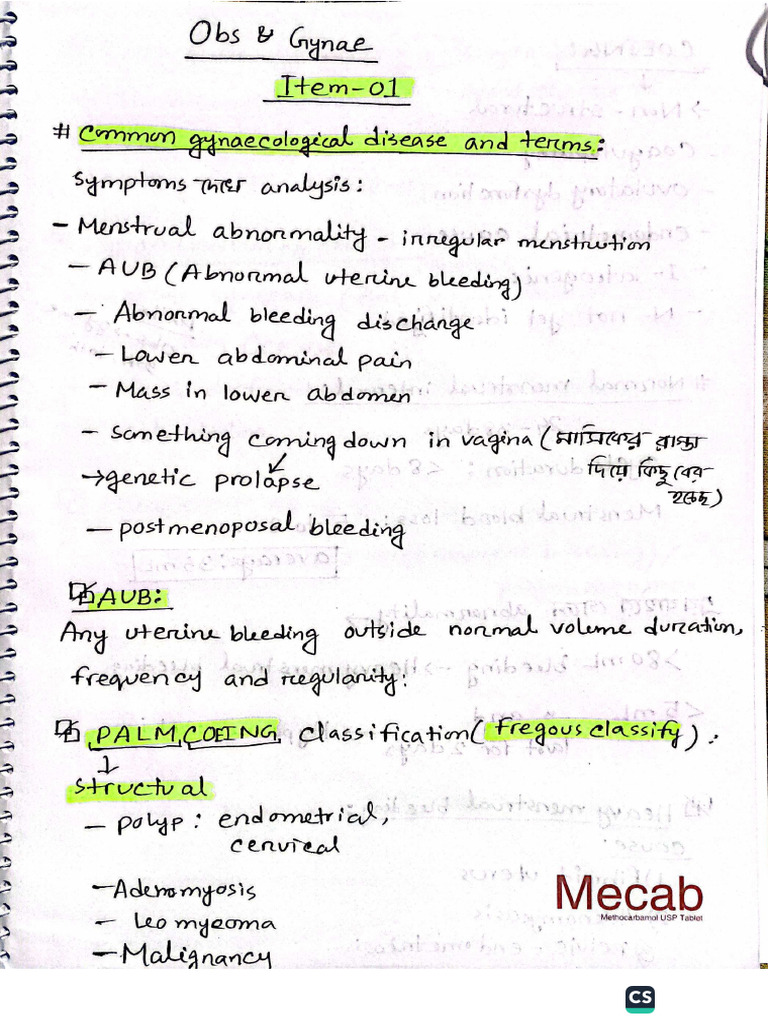 Obs & Gynae
Item-01
# Common gynaecological disease and terms:
Symptoms দেখে analysis:
- Menstrual abnormality - irregular menstruation
- AUB (Abnormal uterine bleeding)
- Abnormal bleeding discharge
- Lower abdominal pain
- Mass in lower abdomen
- something coming down in vagina (মাসিকের রাস্তা
দিয়ে কিছু বের
হচ্ছে)
→ genetic prolapse
- postmenoposal bleeding
AUB:
Any uterine bleeding outside normal volume duration,
frequency and regularity.
PALM, COEING, Classification (Fregous classify).
↓
structual
- polyp: endometrial,
cervical
- Adenomyosis
- Leo myeoma
- Malignancy
Mecab
Methocarbamol USP Tablet
CS